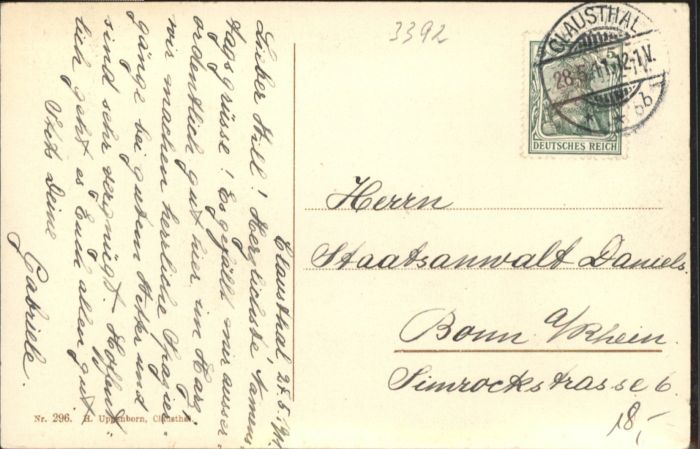 3392
CLAUSTHAL
28.5.11.12-1V.
* *b
DEUTSCHES REICH
Clausthal, 27.5.1911
Lieber Will! Herzlichste Namens-
tagsgrüsse! Es gefällt mir ausser-
ordentlich gut hier im Harz,
wir machen herrliche Spazier-
gänge bei gutem Wetter und
sind sehr vergnügt. Hoffent-
lich geht es Euch allen gut
Stets Deine
Gabriele.
Herrn
Staatsanwalt Daniels
Bonn a/Rhein.
Simrockstrasse 6.
18,-
Nr. 296. H. Uppenborn, Clausthal.